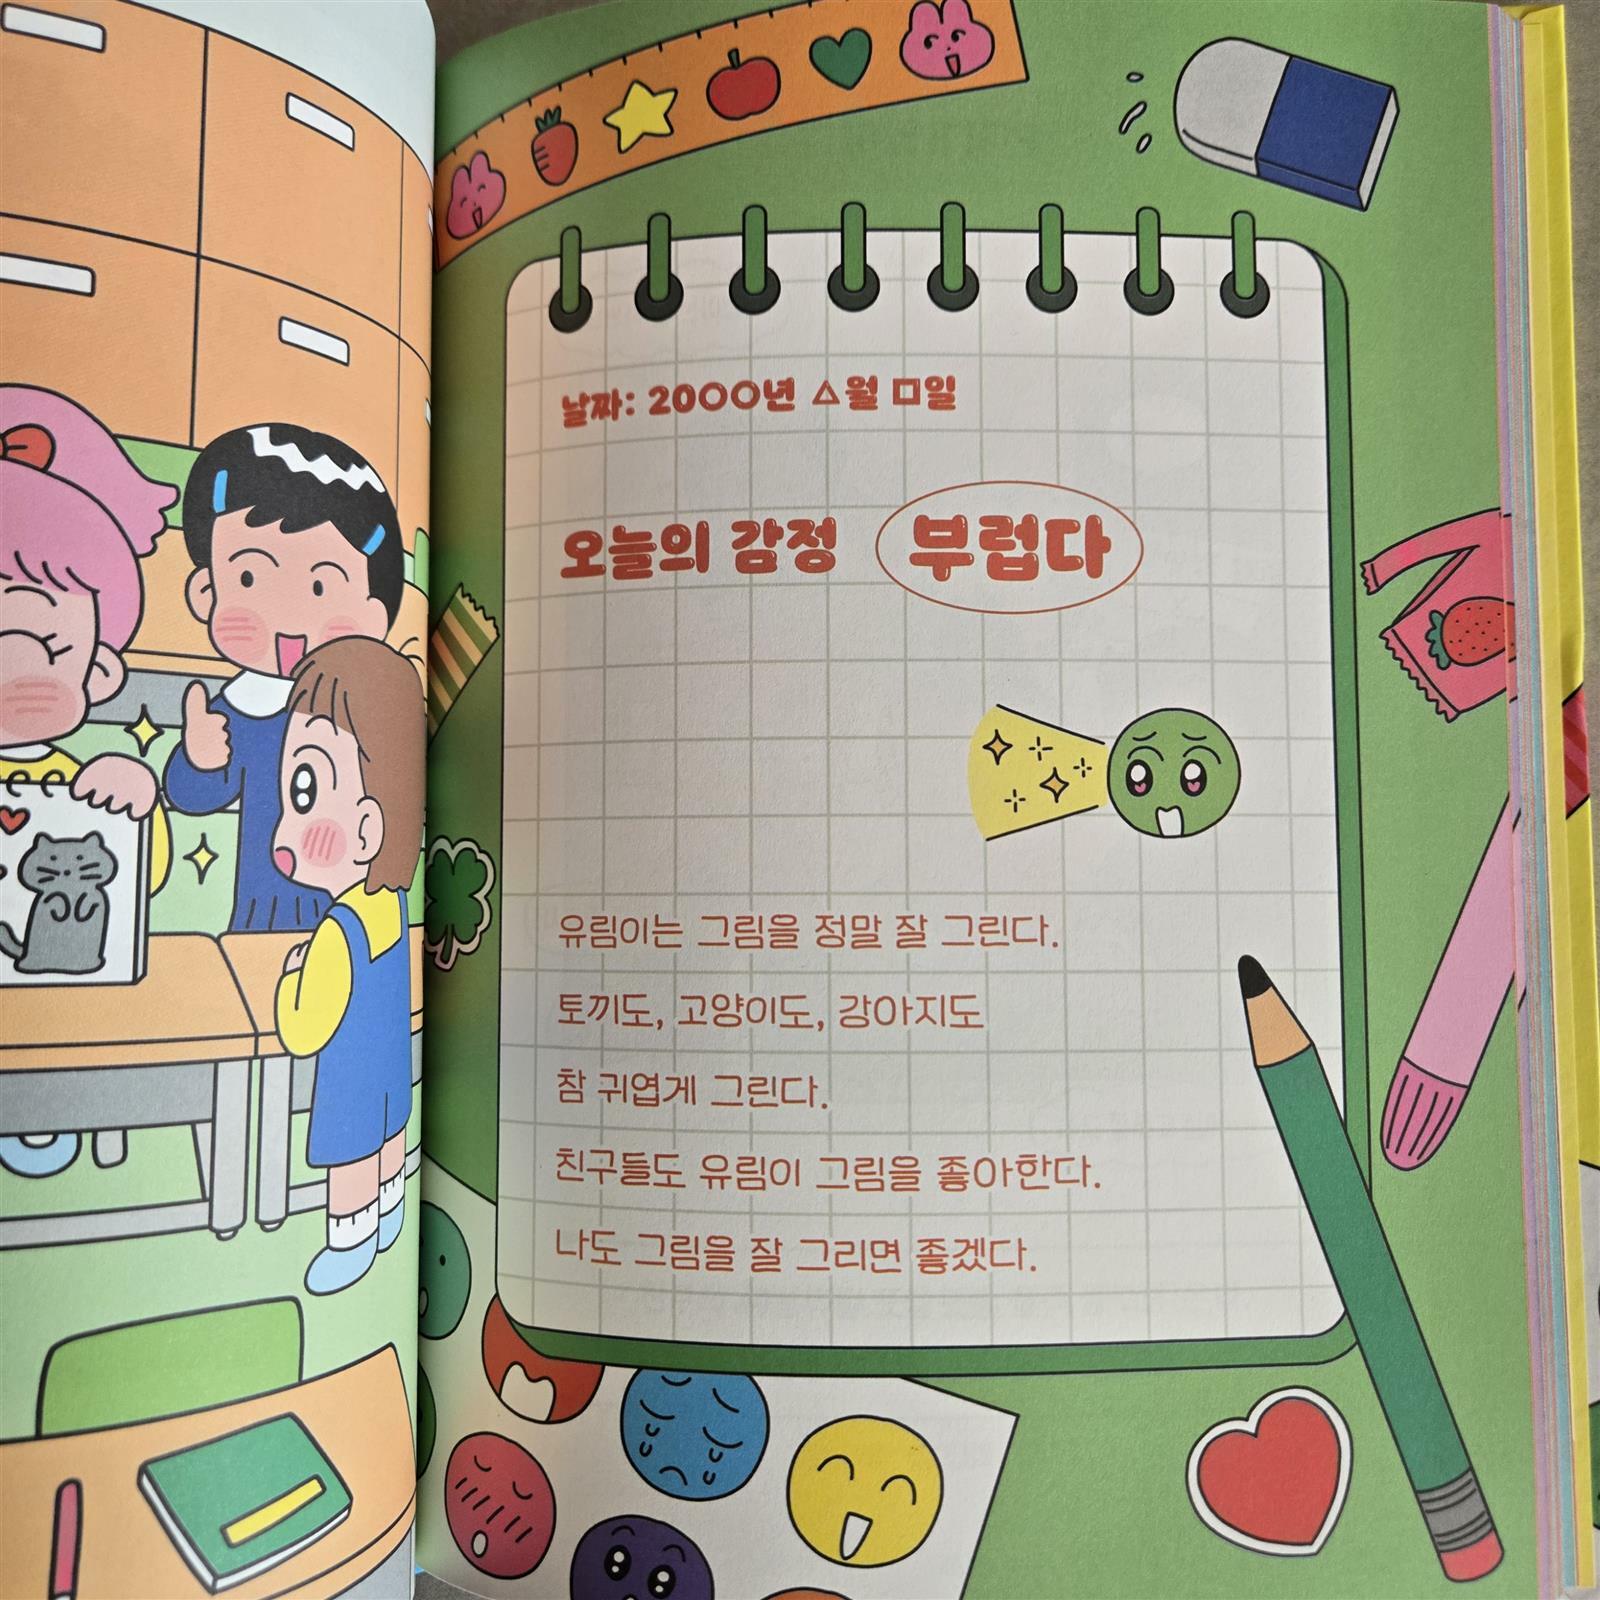 날짜: 20○○년 △월 □일
오늘의 감정 부럽다
유림이는 그림을 정말 잘 그린다.
토끼도, 고양이도, 강아지도
참 귀엽게 그린다.
친구들도 유림이 그림을 좋아한다.
나도 그림을 잘 그리면 좋겠다.